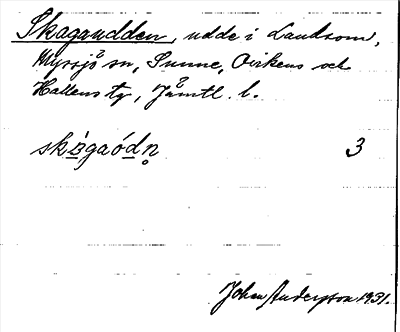 Skagaudden, udde i Landsom,
Myssjö sn, Sunne, Ovikens och
Hallens tg, Jämtl. l.
skàgaódn̥ 3
Johan Andersson 1931.